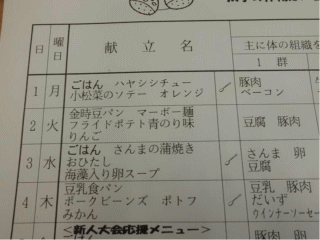 日 曜日 献立名 主に体の組織を
1群
1 月 ごはん ハヤシシチュー 豚肉
小松菜のソテー オレンジ ベーコン
2 火 金時豆パン マーボー麺 豆腐 豚肉
フライドポテト青のり味
りんご
3 水 ごはん さんまの蒲焼き さんま 卵
おひたし 豆腐
海藻入り卵スープ
4 木 豆乳食パン 豆乳 豚肉
ポークビーンズ ポトフ だいず
みかん ウインナーソーセ
<新人大会応援メニュー>
ごはん